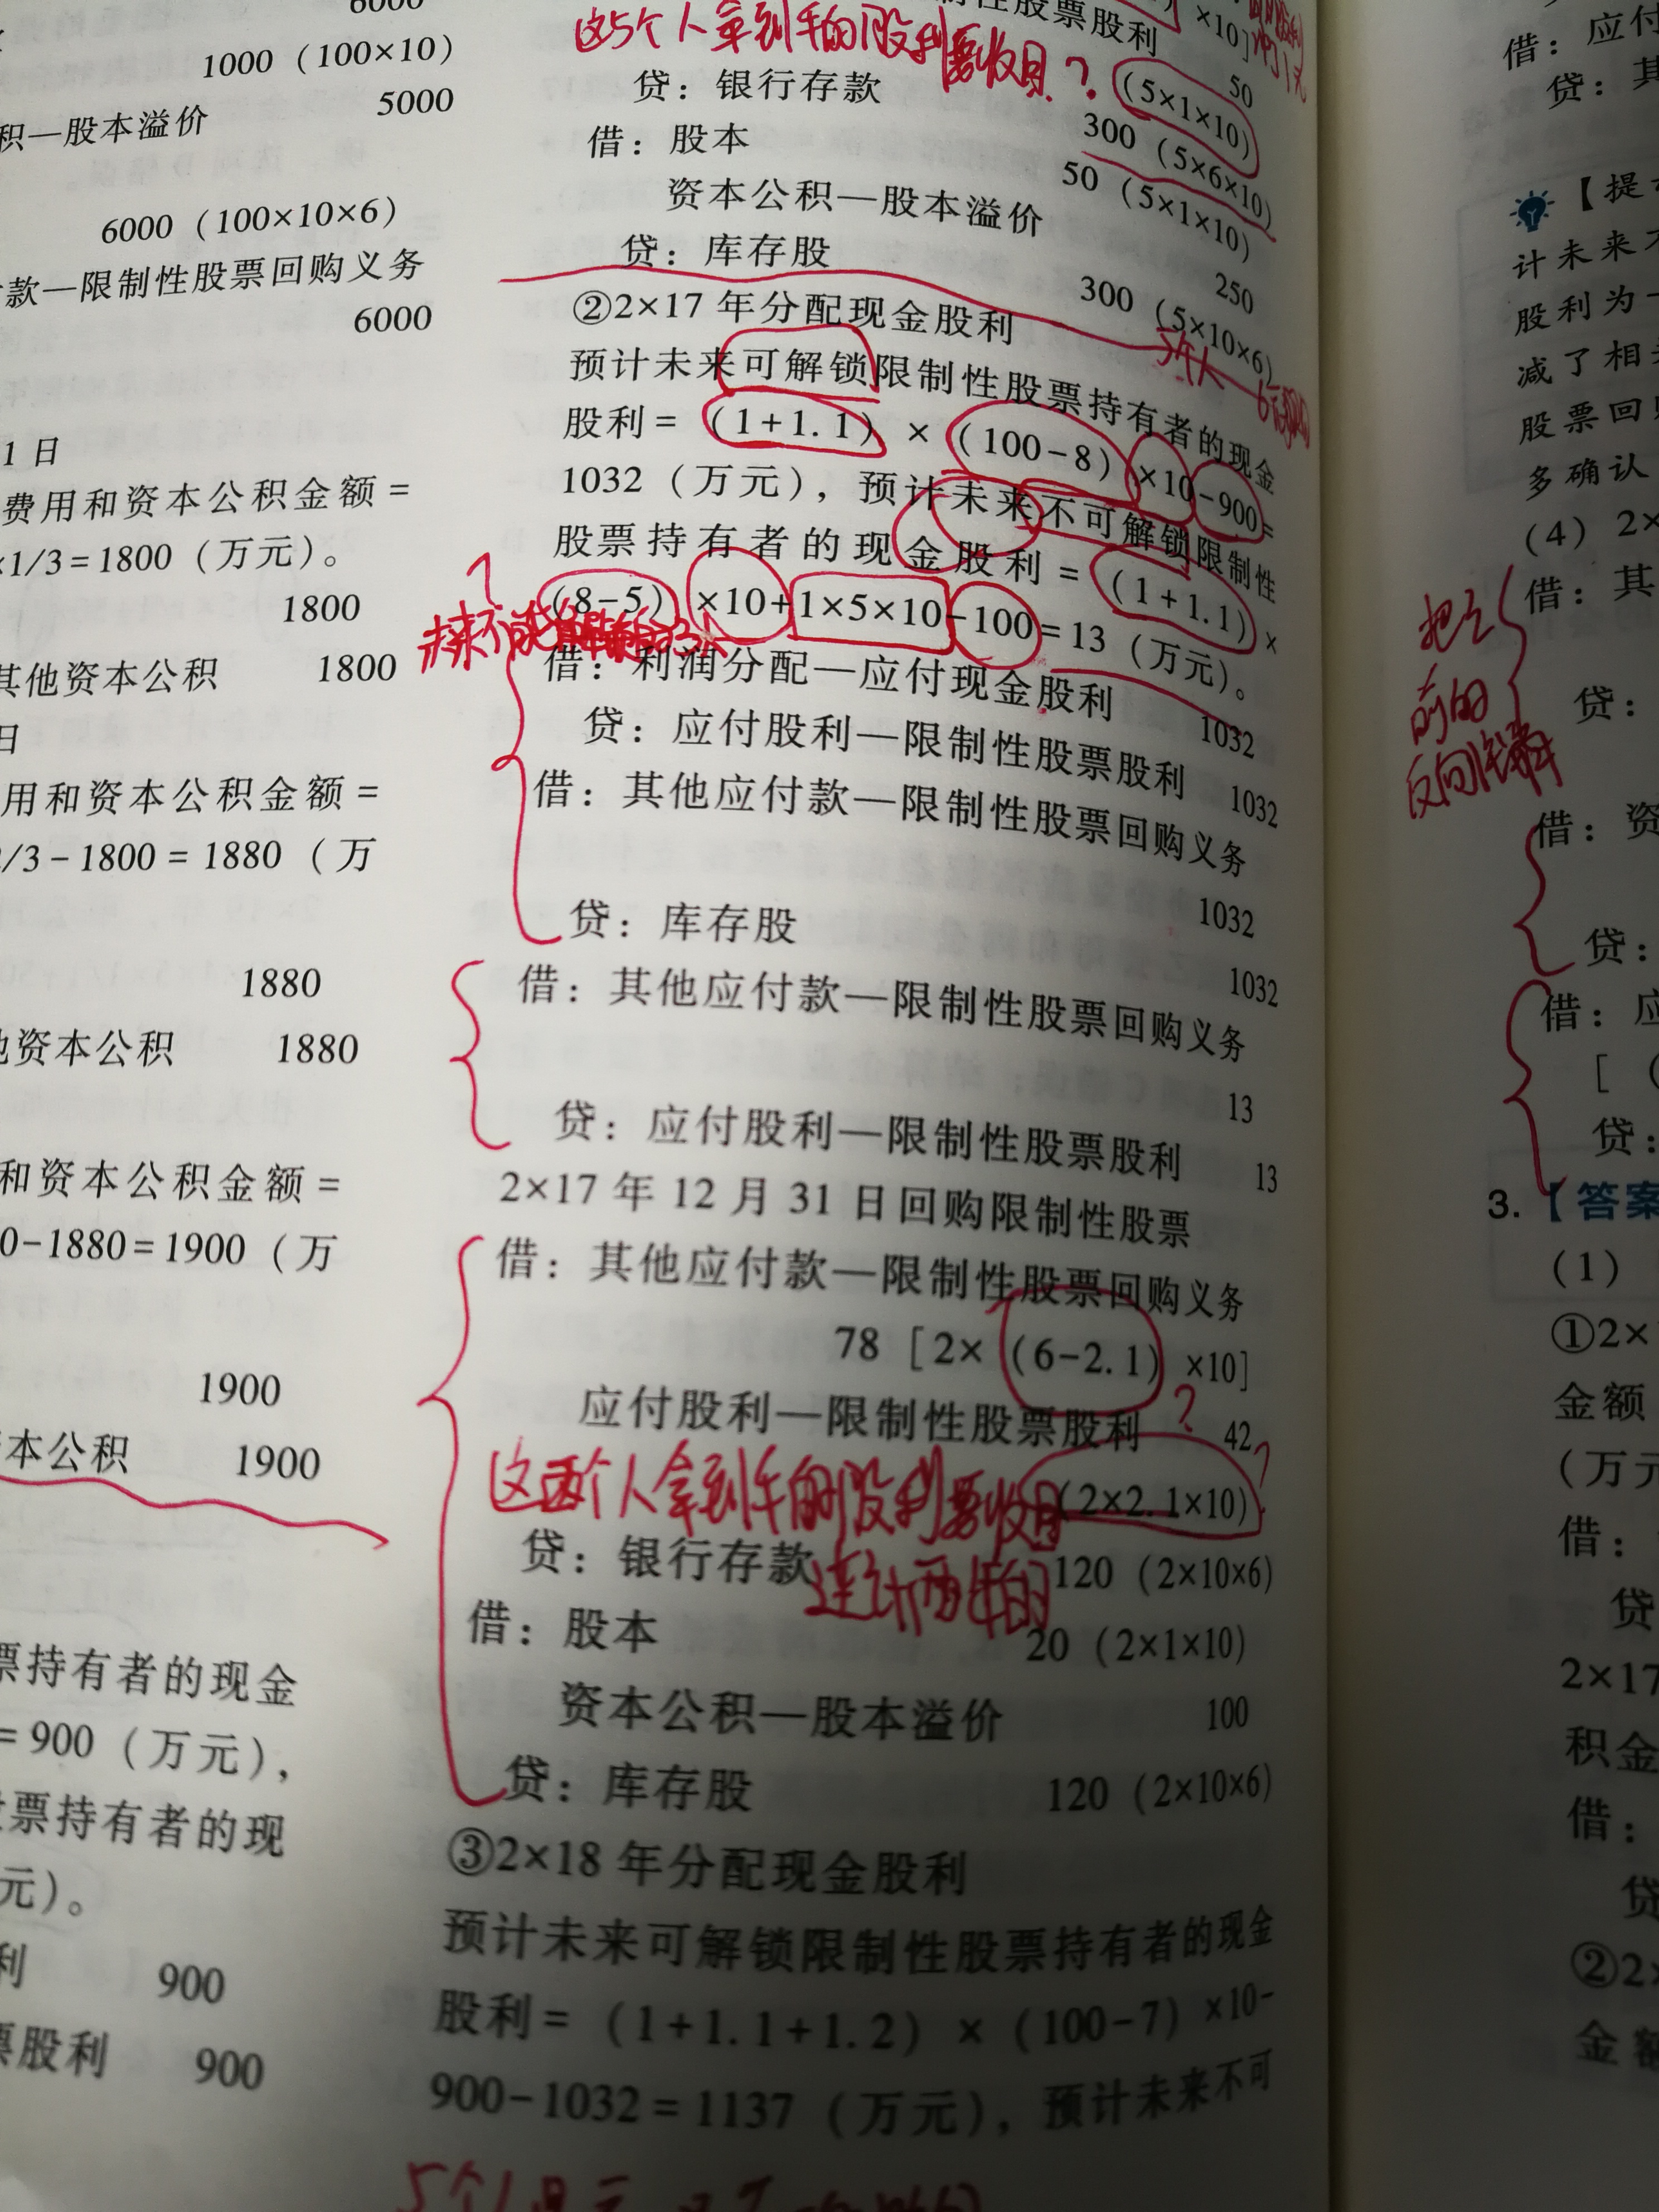 6000
1000（100×10）
积—股本溢价 5000
6000（100×10×6）
款—限制性股票回购义务
6000
1日
费用和资本公积金额＝
×1/3＝1800（万元）。
1800
其他资本公积 1800
日
用和资本公积金额＝
2/3－1800＝1880（万
1880
他资本公积 1880
和资本公积金额＝
0－1880＝1900（万
1900
本公积 1900
票持有者的现金
＝900（万元），
股票持有者的现
元）。
利 900
票股利 900
性股票股利 ×10］
这5个人拿到手的股利要收回？
50
贷：银行存款 （5×1×10）
300（5×6×10）
借：股本 50（5×1×10）
资本公积—股本溢价
250
贷：库存股 300（5×10×6）
5个人
②2×17年分配现金股利
预计未来可解锁限制性股票持有者的现金
股利＝（1＋1.1）×（100－8）×10－900＝
1032（万元），预计未来不可解锁限制性
股票持有者的现金股利＝（1＋1.1）×
（8－5）×10＋1×5×10－100＝13（万元）。
未来不能解锁的3人
借：利润分配—应付现金股利
1032
贷：应付股利—限制性股票股利
1032
借：其他应付款—限制性股票回购义务
1032
贷：库存股
1032
借：其他应付款—限制性股票回购义务
13
贷：应付股利—限制性股票股利
13
2×17年12月31日回购限制性股票
借：其他应付款—限制性股票回购义务
78［2×（6－2.1）×10］
应付股利—限制性股票股利 ？
42
（2×2.1×10）？
这两个人拿到手的股利要收回
连续两年的
贷：银行存款 120（2×10×6）
借：股本 20（2×1×10）
资本公积—股本溢价 100
贷：库存股 120（2×10×6）
③2×18年分配现金股利
预计未来可解锁限制性股票持有者的现金
股利＝（1＋1.1＋1.2）×（100－7）×10－
900－1032＝1137（万元），预计未来不可
借：应付
贷：其
【提
计未来不
股利为
减了相
股票回购
多确认
（4）2×
借：其
把之
前的
反向冲掉
贷：
借：资
贷：
借：应
［（
贷：
3.【答案
（1）
①2×
金额
（万元
借：
贷
2×17
积金
借：
贷
②2×
金额